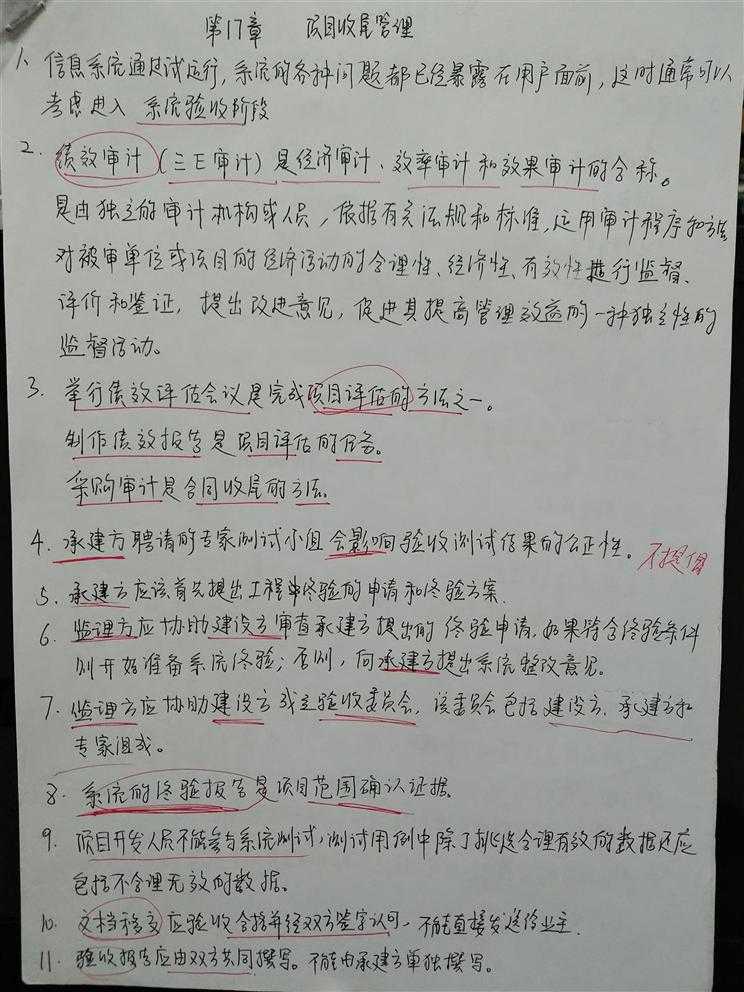 第17章 项目收尾管理
1、信息系统通过试运行,系统的各种问题都已经暴露在用户面前,这时通常可以
考虑进入 系统验收阶段
2. 绩效审计(三E审计)是经济审计、效率审计和效果审计的合称。
是由独立的审计机构或人员,依据有关法规和标准,运用审计程序和方法
对被审单位或项目的经济活动的合理性、经济性、有效性进行监督、
评价和鉴证,提出改进意见,促进其提高管理效益的一种独立性的
监督活动。
3. 举行绩效评估会议是完成项目评估的方法之一。
制作绩效报告是项目评估的任务。
采购审计是合同收尾的方法。
4. 承建方聘请的专家测试小组会影响验收测试结果的公正性。 不提倡
5. 承建方应该首先提出工程终验的申请和终验方案.
6. 监理方应协助建设方审查承建方提出的终验申请,如果符合终验条件
则开始准备系统终验;否则,向承建方提出系统整改意见。
7. 监理方应协助建设方成立验收委员会,该委员会包括建设方、承建方和
专家组成。
8. 系统的终验报告是项目范围确认证据。
9. 项目开发人员不能参与系统测试,测试用例中除了挑选合理有效的数据还应
包括不合理无效的数据。
10. 文档移交应验收合格并经双方签字认可、不能直接发送给业主.
11. 验收报告应由双方共同撰写。不能由承建方单独撰写。